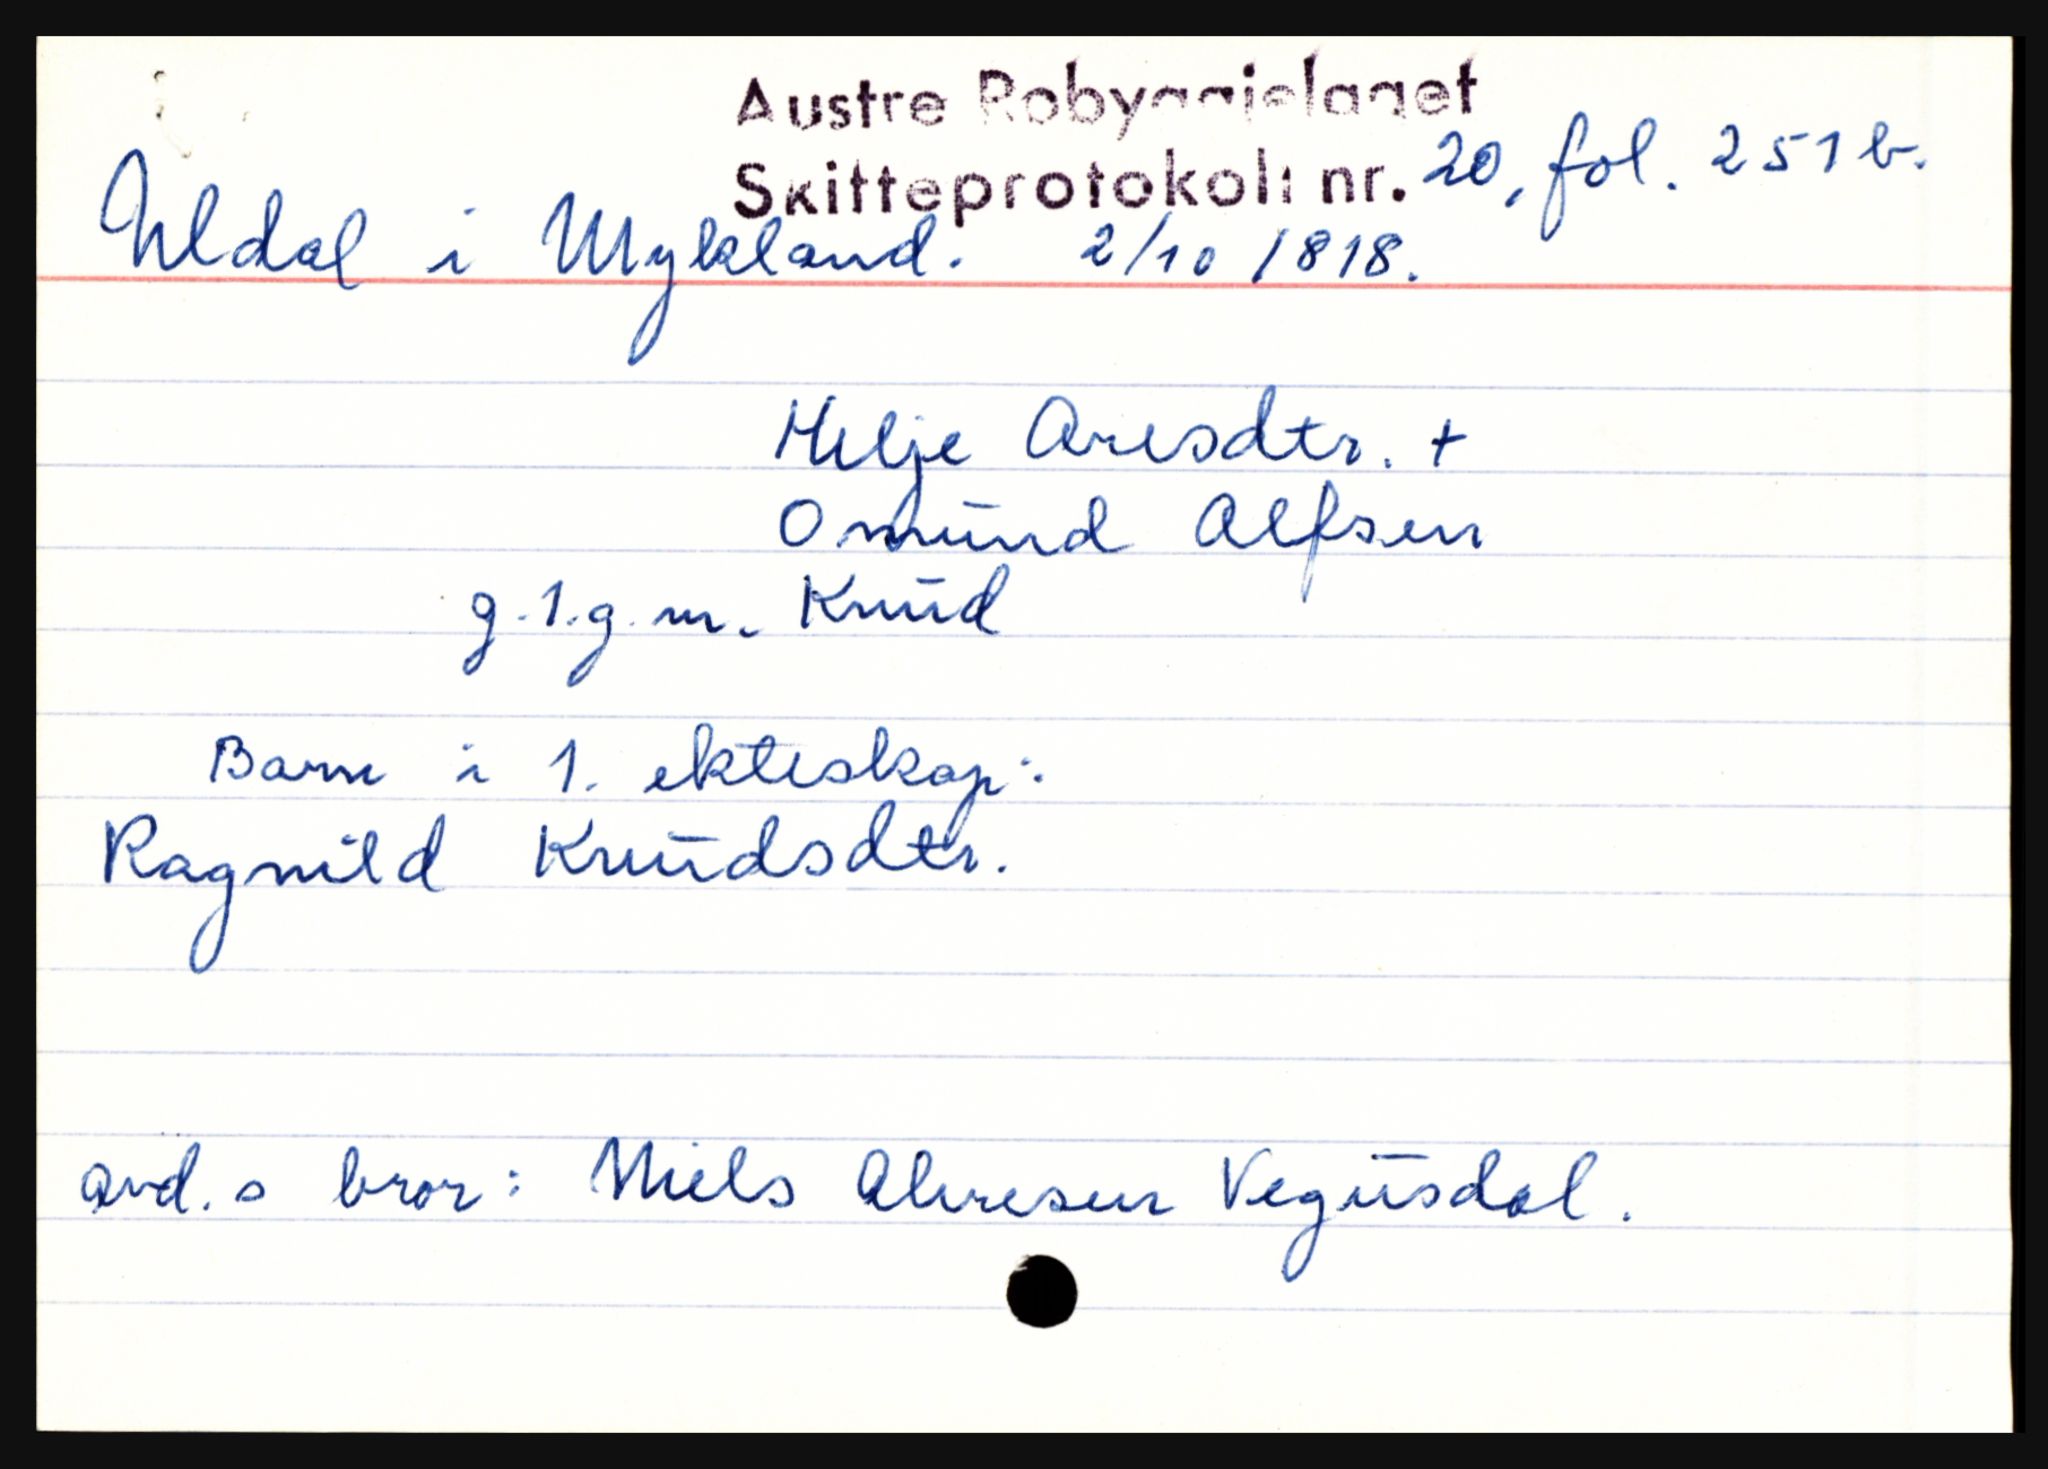 Austre Robyggjelaget
Skifteprotokoll nr. 20, fol. 251 b.
Uldal i Mykland. 2/10 1818.
Helje Aresdtr. +
Omund Alfsen
g. 1. g. m. Knud
Barn i 1. ekteskap:
Ragnild Knudsdtr.
avd. s bror: Niels Alvresen Vegusdal.